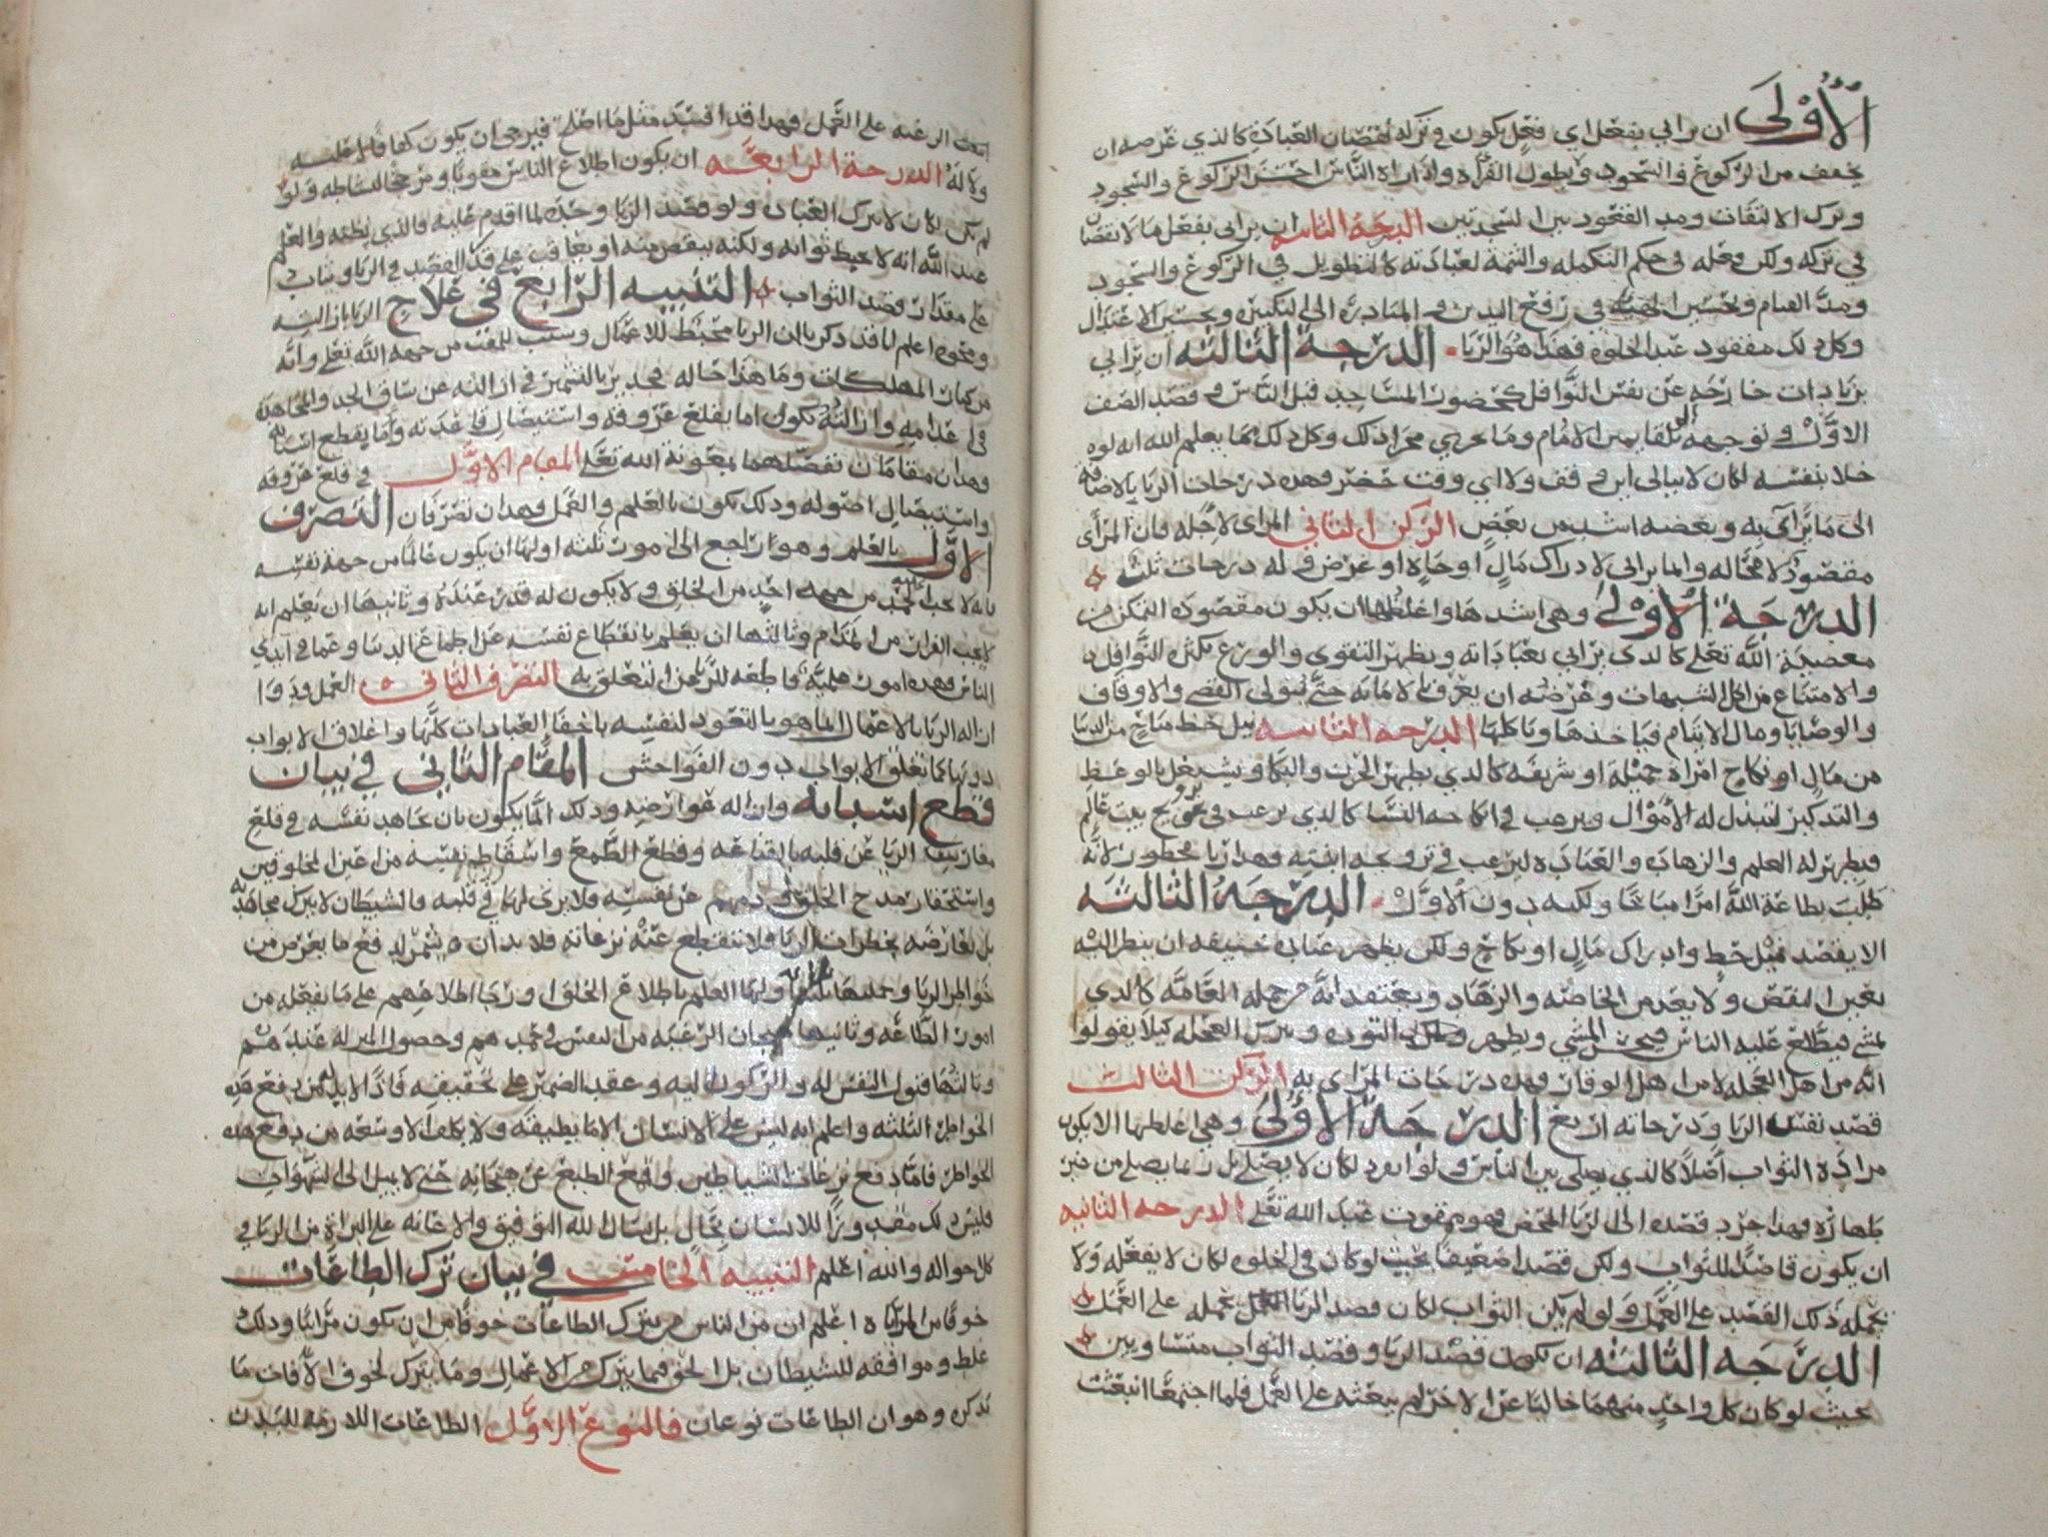 الأولى ان يرائي بفعل اي فعل يكون في تركه نقصان العبادة كالذي غرضه ان
يخفف من الركوع والسجود ويطول القراة واذا راه الناس احسن الركوع والسجود
وترك الالتفات ومد القعود بين السجدتين الدرجة الثانيه ان يرائي بفعل ما لا نقصان
في تركه ولكن فعله في حكم التكمله والتتمة لعبادته كالتطويل في الركوع والسجود
ومد القيام وتحسين الهيئة في رفع اليدين والمبادرة الى التكبيرة وتحسين الاعتدال
وكل ذلك مفقود عند الخلوه فهذا هو الريا الدرجة الثالثه ان يرائي
بزيادات خارجة عن نفس النوافل كحضور المساجد قبل الناس وقصد الصف
الاول وتوجهه الى تلقا يمين الامام وما يجري مجرا ذلك وكل ذلك مما يعلم الله انه لوه
خلا بنفسه لكان لا يبالي اين وقف ولا اي وقت حضر وهذه درجات الريا بالاضافة
الى ما يرآى به وبعضه اشد من بعض الركن الثاني المراى لاجله فان المرآى
مقصود لا محاله وانما يرائي لادراك مال او جاه او غرض وله درجات ثلث
الدرجة الأولى وهي اشدها واغلظها ان يكون مقصوده التمكن من
معصية الله تعلى كالذي يرائي بعباداته ويظهر التقوى والورع بكثرة النوافل
والامتناع من اكل الشبهات وغرضه ان يعرف بالامانه حتى يتولى القضى والاوقاف
والوصايا ومال الايتام فياخذها وياكلها الدرجه الثانيه نيل حظ مباح من الدنيا
من مال او نكاح امراة جميلة او شريفه كالذي يظهر الحزن والبكا ويشتغل بالوعظ
والتذكير لتبذل له الأموال ويرغب في انكاحه النسا كالذي يرغب في تزويج بيت عالم
فيظهر له العلم والزهادة والعبادة ليرغب في تزويجه ابنته وهذا ريا محظور لانه
طلب بطاعة الله امرا مباحا ولكنه دون الأول الدرجة الثالثه
الا يقصد نيل حظ وادراك مال او نكاح ولكن يظهر عبادة خيفه ان ينظر اليه
بعين النقص ولا يعد من الخاصه والزهاد ويعتقد انه من جمله العامه كالذي
يمشي فيطلع عليه الناس فيحسن المشي ويظهر التوده ويترك العجله كيلا يقولوا
انه من اهل العجله لا من اهل الوقار وهذه درجات المراى به الركن الثالث
قصد نفس الريا ودرجاته اربع الدرجة الأولى وهي اغلظها الا يكون
مراده الثواب اصلا كالذي يصلي بين الناس ولو انفرد لكان لا يصلي بل ربما يصلي من غير
طهارة فهذا جرد قصده الى الريا المحض فهو ممقوت عند الله تعلى الدرجه الثانيه
ان يكون قاصدا للثواب ولكن قصدا ضعيفا بحيث لو كان في الخلوه لكان لا يفعله ولا
يحمله ذلك القصد على العمل ولو لم يكن الثواب لكان قصد الريا يحمله على العمل
الدرجه الثالثه ان يكون قصد الريا وقصد الثواب متساويين
بحيث لو كان كل واحد منهما خاليا عن الاخر لم يبعثه على العمل فلما اجتمعا انبعثت
انبعثت الرغبه على العمل فهذا قد افسد مثل ما اصلح فيرجى ان يكون كفافا لا عليه
ولا له الدرجة الرابعه ان يكون اطلاع الناس مقويا ومرجحا لنشاطه ولو
لم يكن لكان لا يترك العبادة ولو قصد الريا وحده لما اقدم عليه والذي نظنه والعلم
عند الله انه لا يحبط ثوابه ولكنه ينقص منه او يعاقب على قدر القصد في الريا ويثاب
على مقدار قصد الثواب التنبيه الرابع في علاج الريا بازالته
ونحوه اعلم انا قد ذكرنا ان الريا محبط للاعمال وسبب للمقت من جهه الله تعلى وانه
من كبار المهلكات وما هذا حاله فجدير بالتشمير في ازالته عن ساق الجد والمجاهدة
في اعدامه وازالته تكون اما بقلع عروقه واستيصال قاعدته واما بقطع اسبابه
وهذان مقامان نفصلهما بمعونة الله تعلى المقام الاول في قلع عروقه
واستيصال اصوله وذلك يكون بالعلم والعمل وهذان تصرفان التصرف
الاول بالعلم وهو راجع الى امور ثلثه اولها ان يكون عالما من جهة نفسه
بانه لا يحب الحمد من جهه احد من الخلق ولا يكون له قدر عنده وثانيها ان يعلم انه
لا يحب الفرار من المذام وثالثها ان يعلم بانقطاع نفسه عن اطماع الدنيا وعما في ايدي
الناس وهذه امور علمية قاطعه للريا عن التعلق به التصرف الثاني العمل ودوا
ازاله الريا بالاعمال انما هو بالتعود لنفسه باخفا العبادات كلها واغلاق الابواب
دونها كما تغلق الابواب دون الفواحش المقام الثاني في بيان
قطع اسبابه وازاله عوارضه وذلك انما يكون بان يجاهد نفسه في قلع
مغارس الريا عن قلبه بالقناعه وقطع الطمع واسقاط نفسه من اعين المخلوقين
واستحقار مدح الخلق وذمهم عن نفسه فلا يرى لها في قلبه فالشيطان لا يترك مجاهدته
بل يعارضه بخطرات الريا فلا تنقطع عنه نزعاته فلا بد ان يشمر لدفع ما يعرض من
خواطر الريا وجملتها ثلثة اولها العلم باطلاع الخلق ورجا اطلاعهم على ما يفعله من
امور الطاعه وثانيها هيجان الرغبه من النفس في حمدهم وحصول المنزله عندهم
وثالثها قبول النفس له والركون اليه وعقد الضمير على تحقيقه فاذا لابد له من دفع هذه
الخواطر الثلثه واعلم انه ليس على الانسان الا ما يطيقه ولا يكلف الا وسعه من دفع هذه
الخواطر فاما دفع نزغات الشياطين وقمع الطبع عن هيجانه حتى لا يميل الى الشهوات
فليس ذلك مقدورا للانسان بحال بل يسال الله التوفيق والاعانه على البراة من الريا في
كل احواله والله اعلم التنبيه الخامس في بيان ترك الطاعات
خوفا من الرياه اعلم ان من الناس من يترك الطاعات خوفا من ان يكون مرائيا وذلك
غلط وموافقه للشيطان بل الحق فيما يترك من الاعمال وما يترك لخوف الآفات ما
نذكره وهو ان الطاعات نوعان فالنوع الاول الطاعات اللازمه للبدن